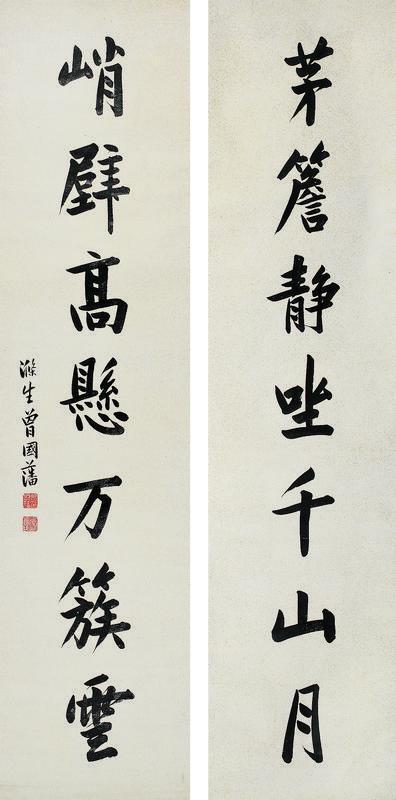 茅簷静㘴千山月
峭壁高懸万簇雲
滌生曾國藩